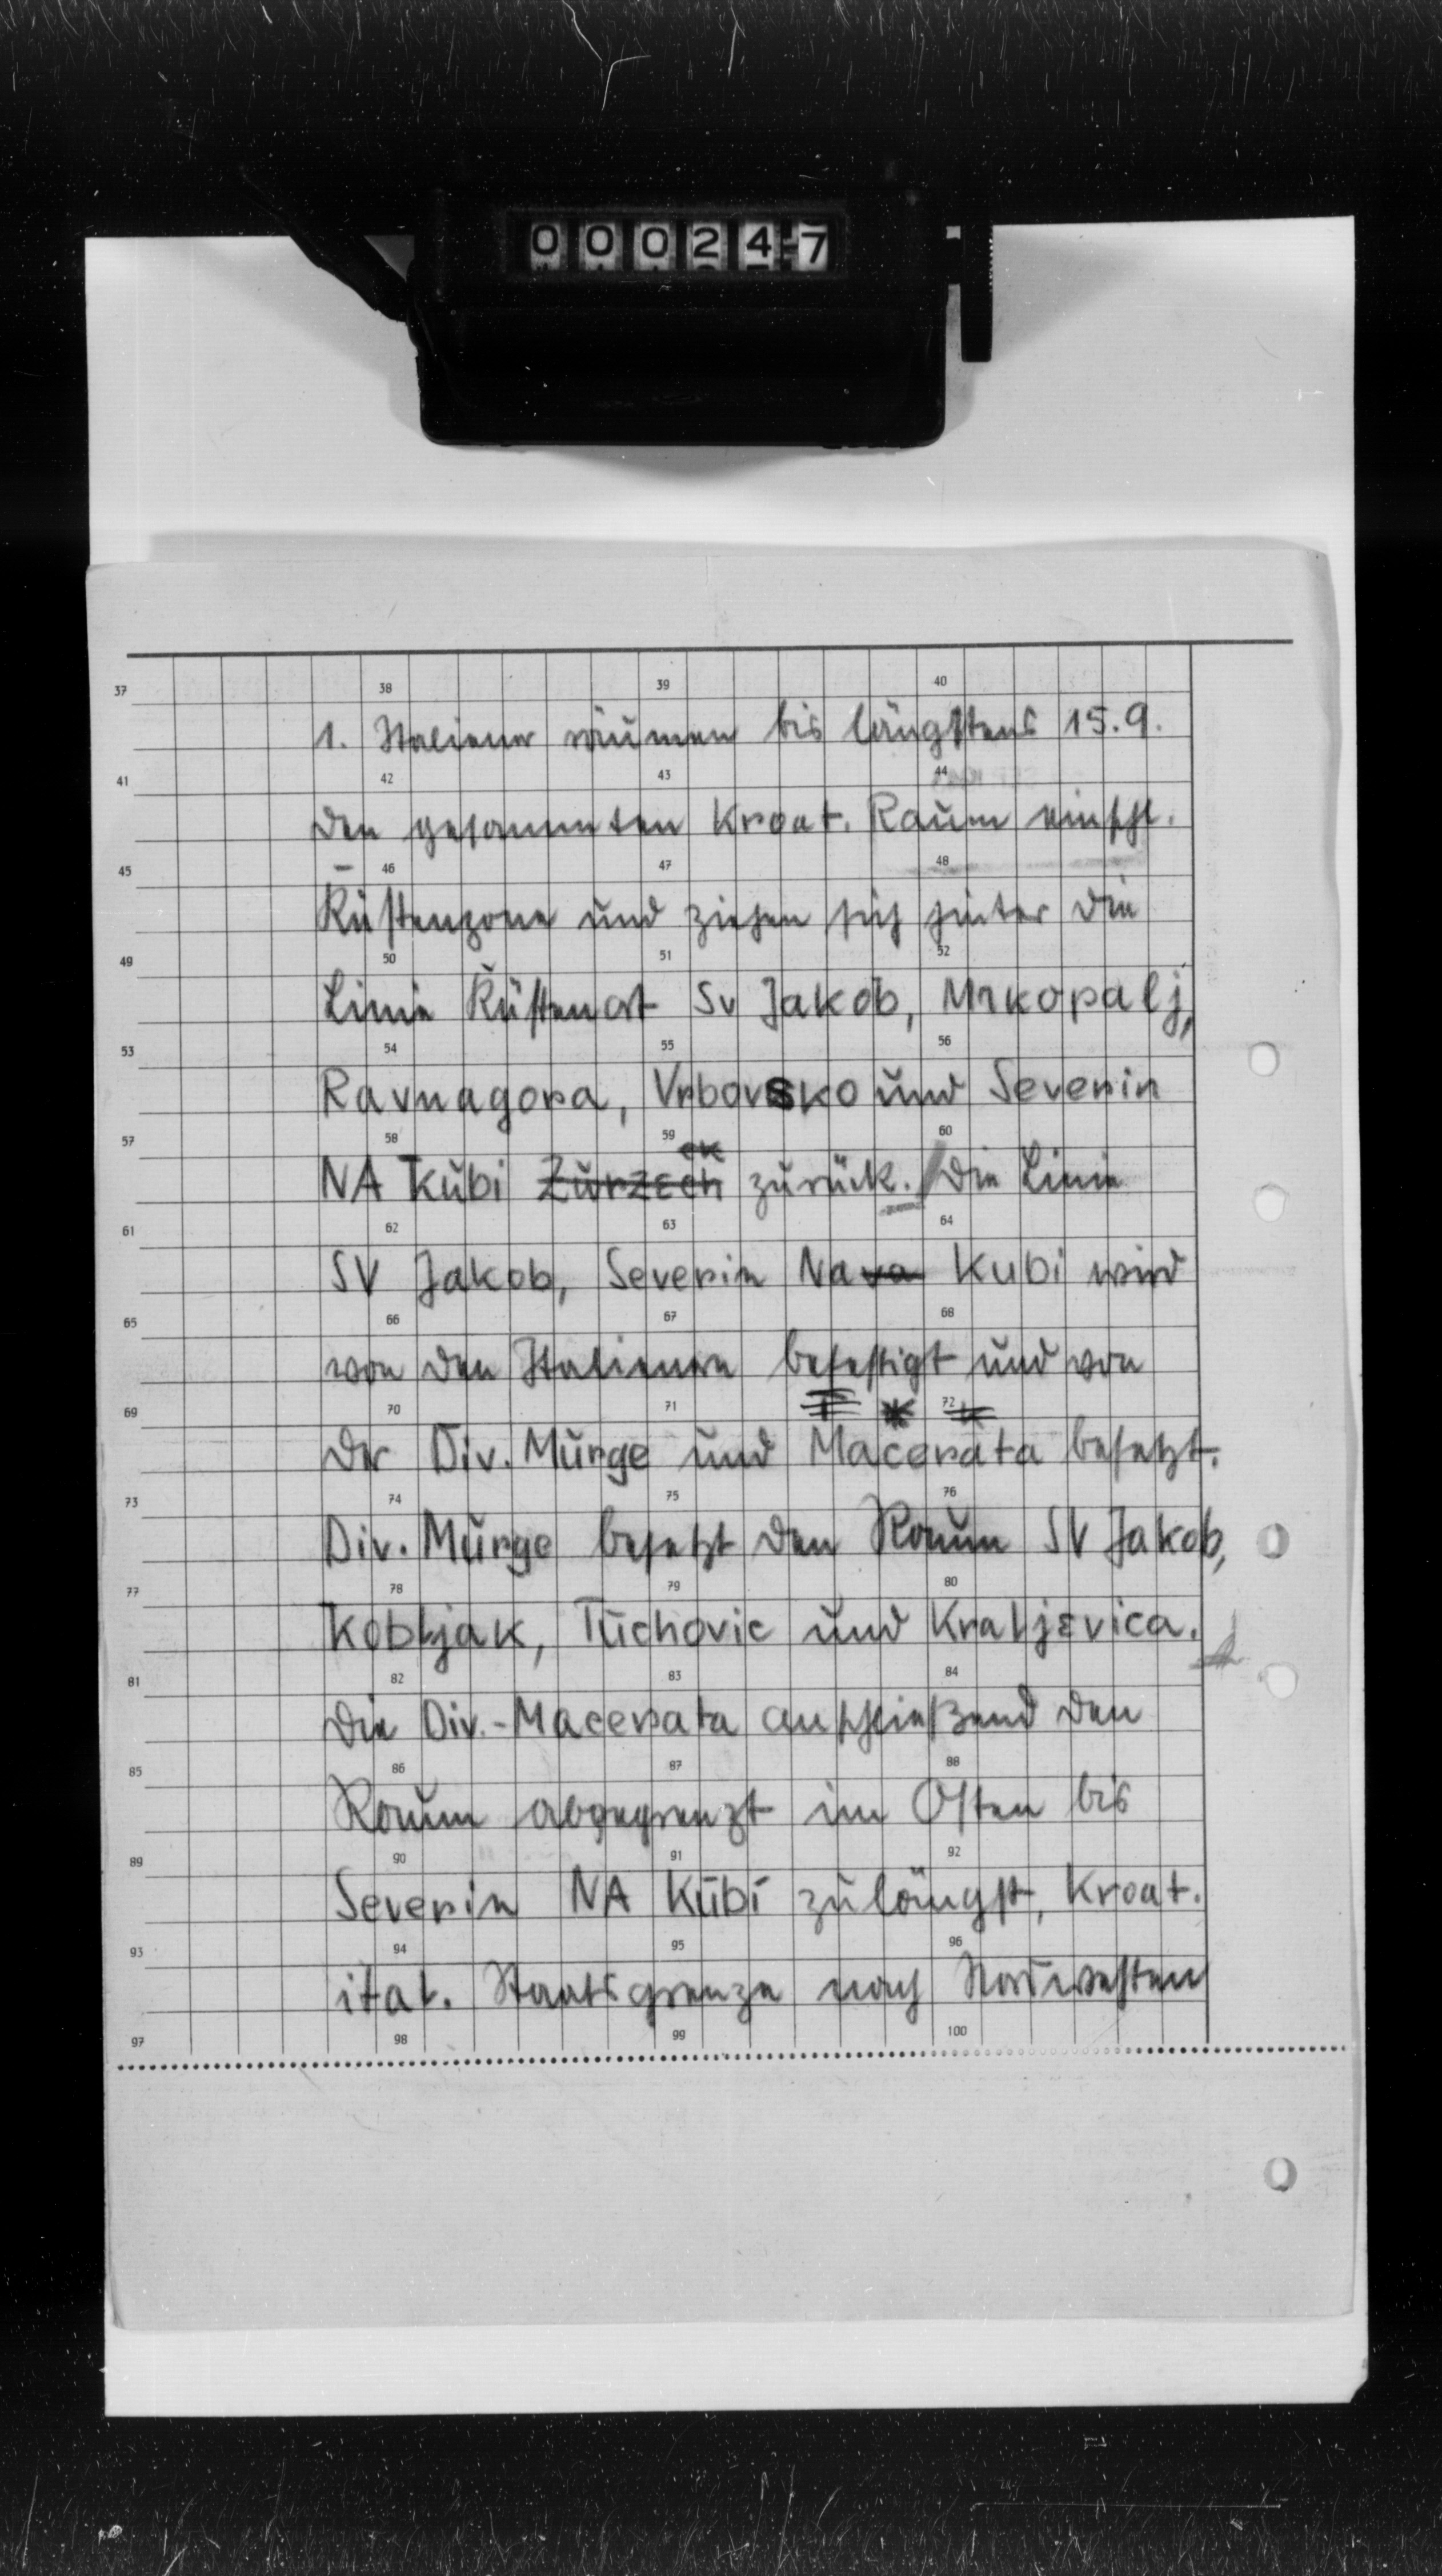 000247
37 38 39 40
1. Italiener räumen bis längstens 15.9.
41 42 43 44
den gesammten Kroat. Raum einschl.
45 46 47 48
Küstenzone und ziehen sich hinter die
49 50 51 52
Linie Küstenort Sv Jakob, Mrkopalj,
53 54 55 56
Ravnagora, Vrbovsko und Severin
57 58 59 60
NA Kubi Zurzech zurück. Die Linie
61 62 63 64
SV Jakob, Severin Nava Kubi wird
65 66 67 68
von den Italienern befestigt und von
69 70 71 72
der Div. Murge und Macerata besetzt.
73 74 75 76
Div. Murge besetzt den Raum SV Jakob,
77 78 79 80
Kobljak, Tuchovic und Kraljevica.
81 82 83 84
Die Div.-Macerata anschließend den
85 86 87 88
Raum abgegrenzt im Osten bis
89 90 91 92
Severin NA Kubi zulängst, Kroat.
93 94 95 96
ital. Staatsgrenze nach Nordwesten
97 98 99 100